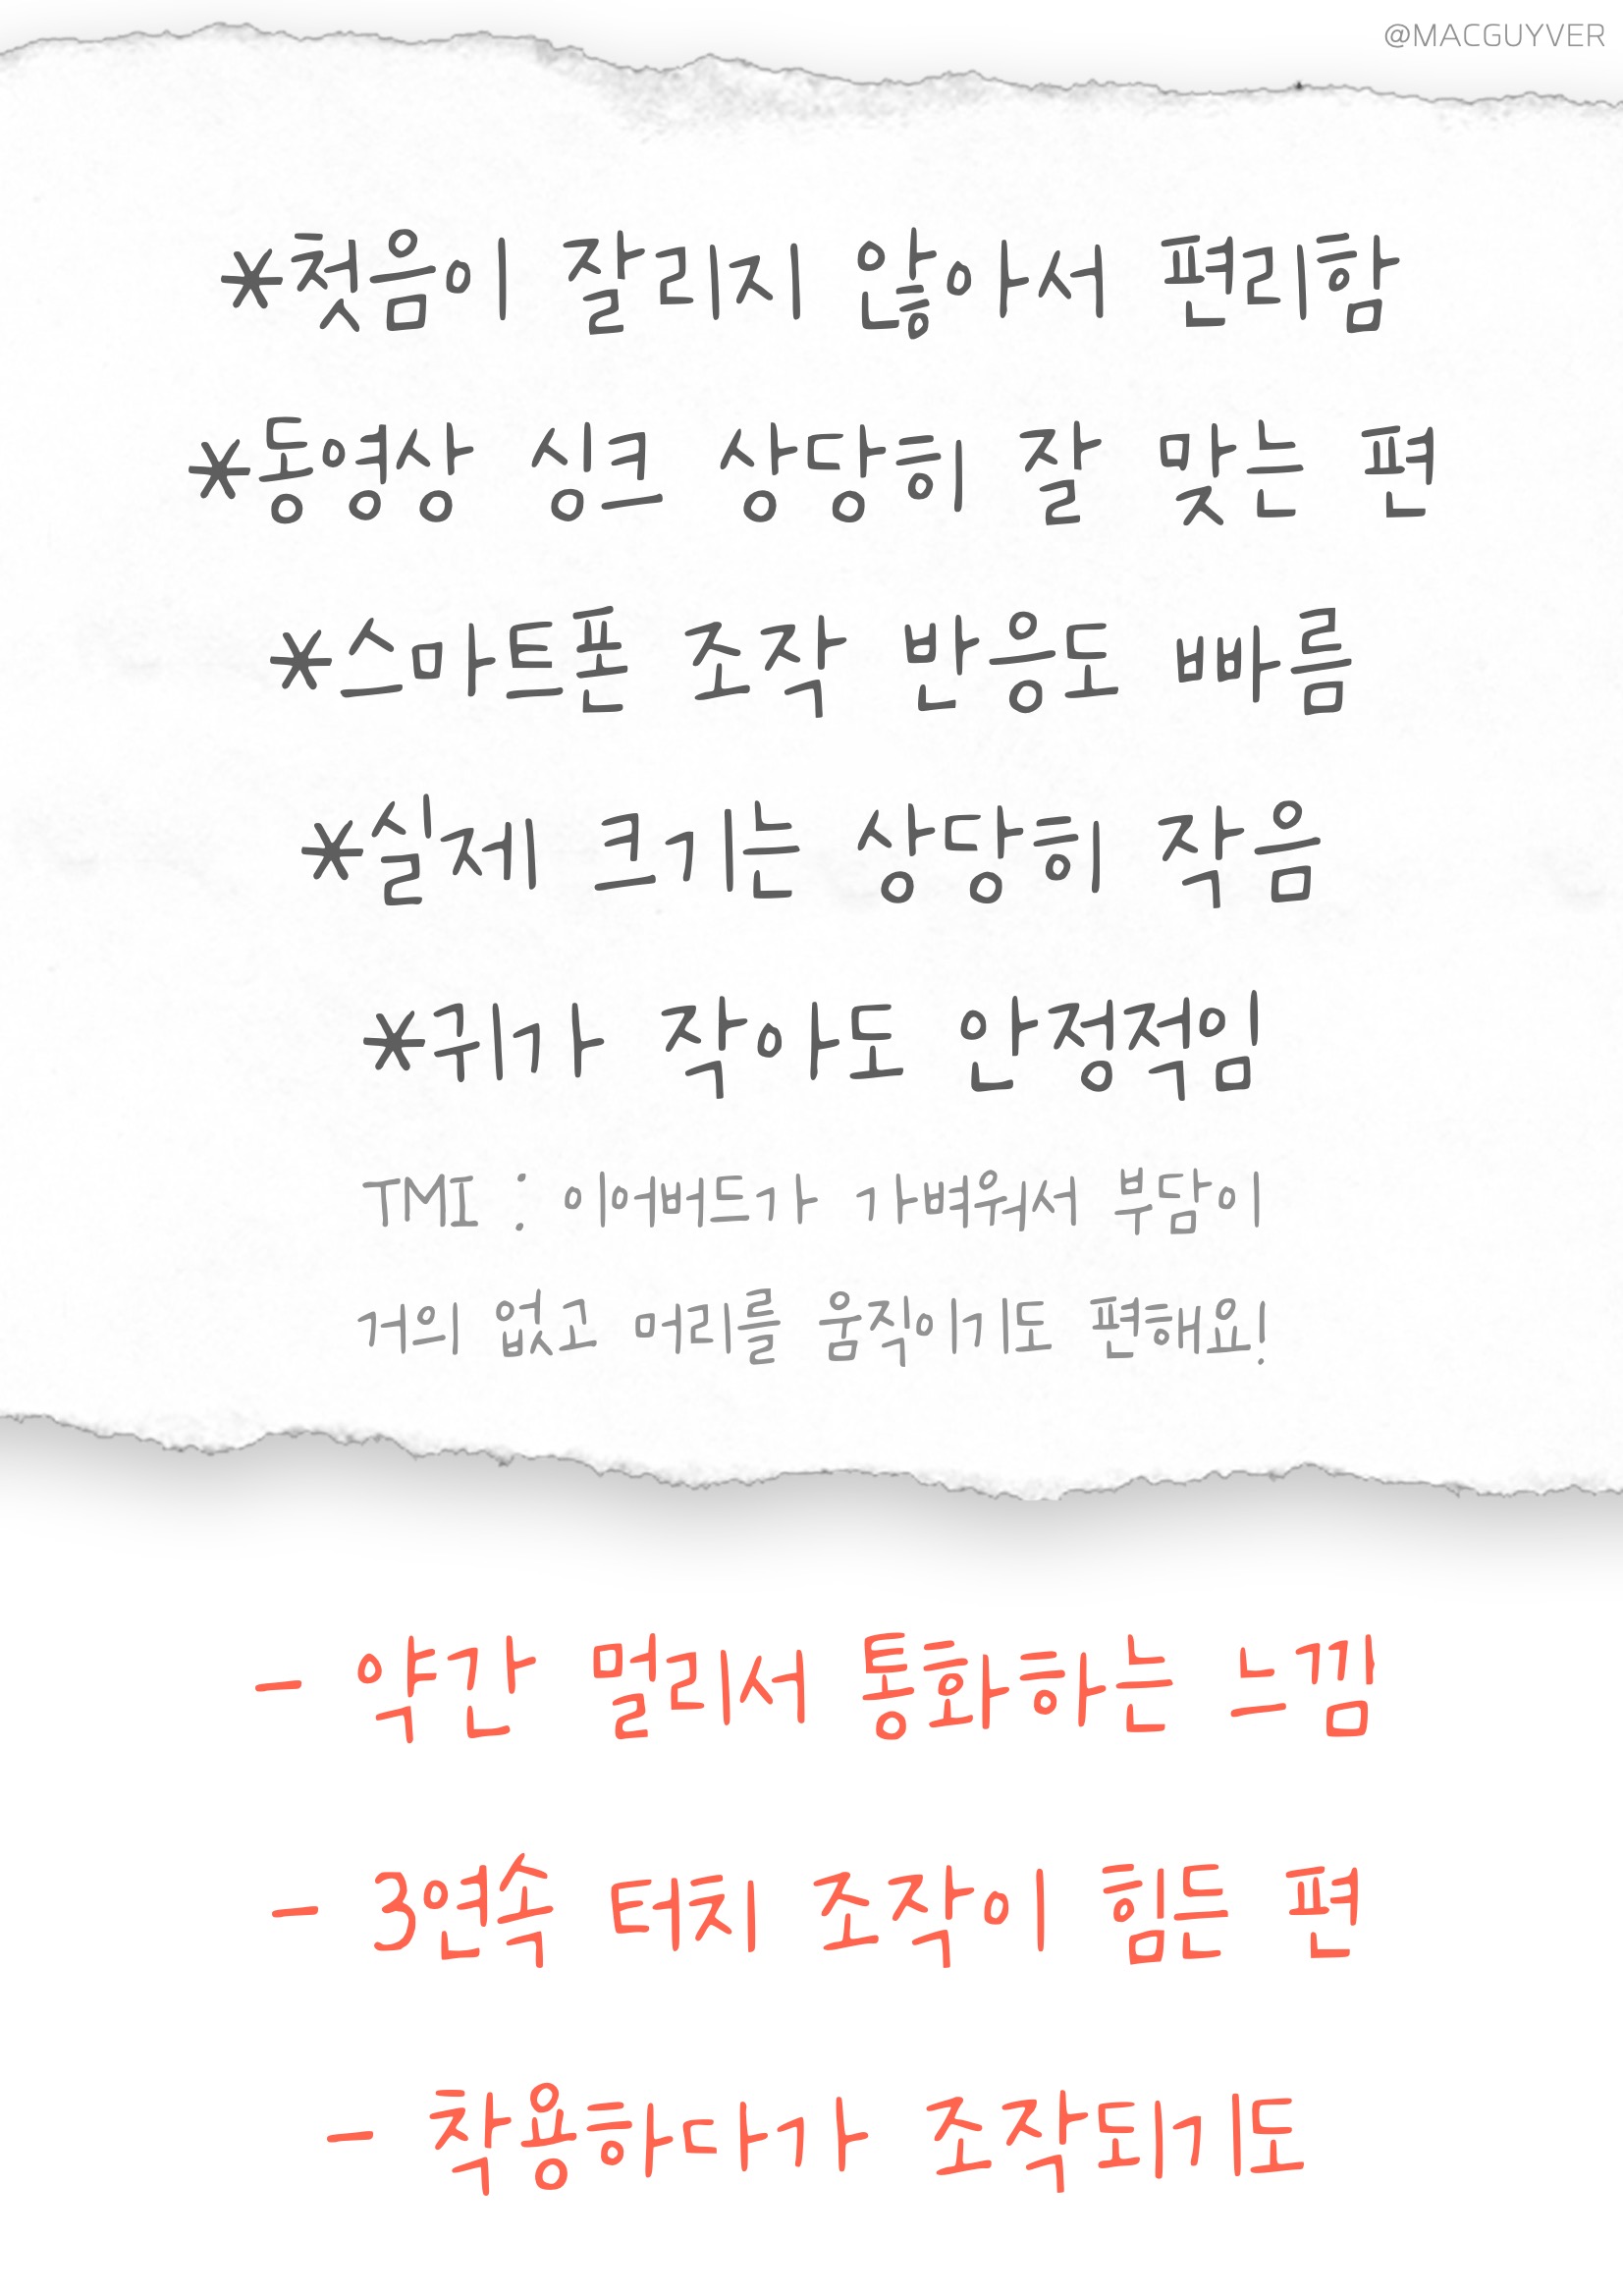 @MACGUYVER
*첫음이 잘리지 않아서 편리함
*동영상 싱크 상당히 잘 맞는 편
*스마트폰 조작 반응도 빠름
*실제 크기는 상당히 작음
*귀가 작아도 안정적임
TMI : 이어버드가 가벼워서 부담이
거의 없고 머리를 움직이기도 편해요!
- 약간 멀리서 통화하는 느낌
- 3연속 터치 조작이 힘든 편
- 착용하다가 조작되기도